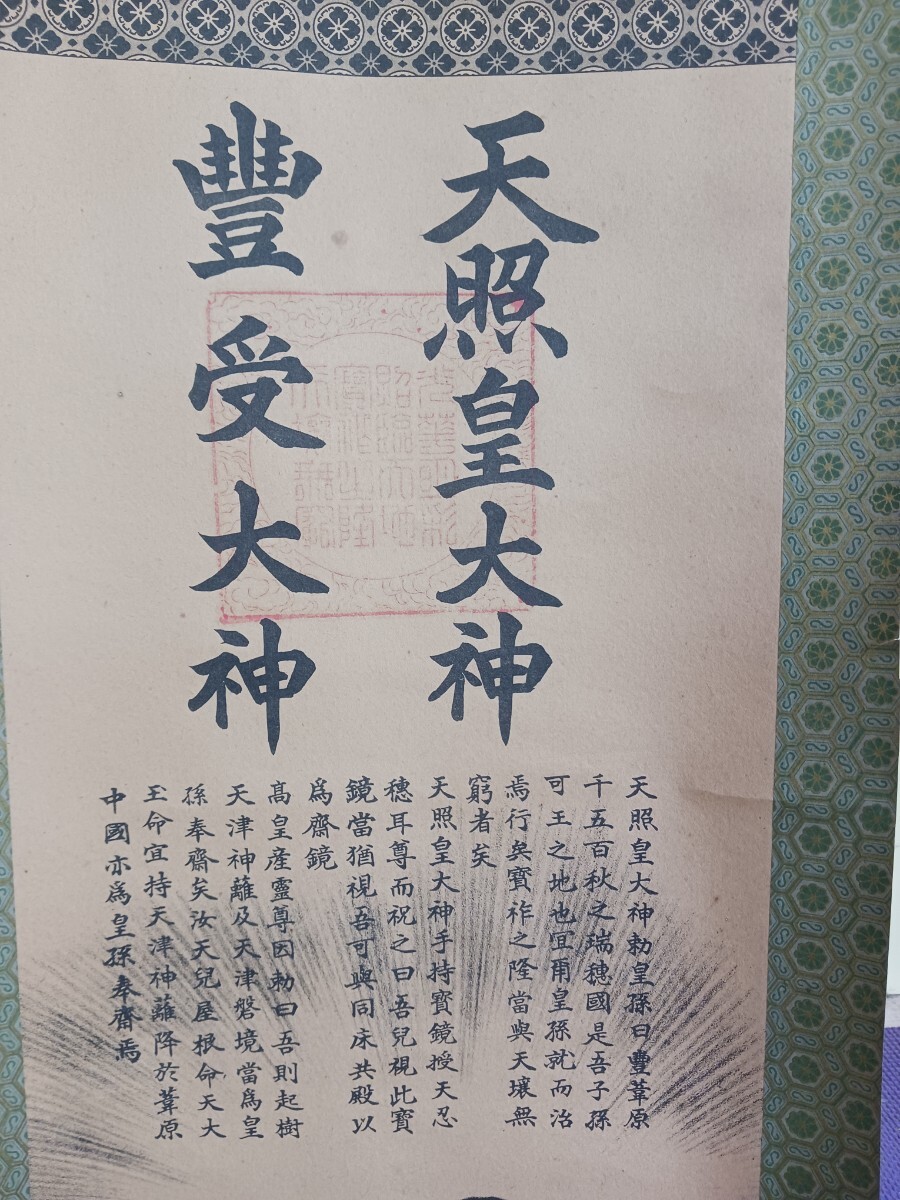 天照皇大神
豐受大神
天照皇大神勅皇孫曰豐葦原
千五百秋之瑞穗國是吾子孫
可王之地也宜爾皇孫就而治
焉行矣寶祚之隆當與天壤無
窮者矣
天照皇大神手持寶鏡授天忍
穗耳尊而祝之曰吾兒視此寶
鏡當猶視吾可與同床共殿以
爲齋鏡
高皇産靈尊因勅曰吾則起樹
天津神籬及天津磐境當爲皇
孫奉齋矣汝天兒屋根命天太
玉命宜持天津神籬降於葦原
中國亦爲皇孫奉齋焉